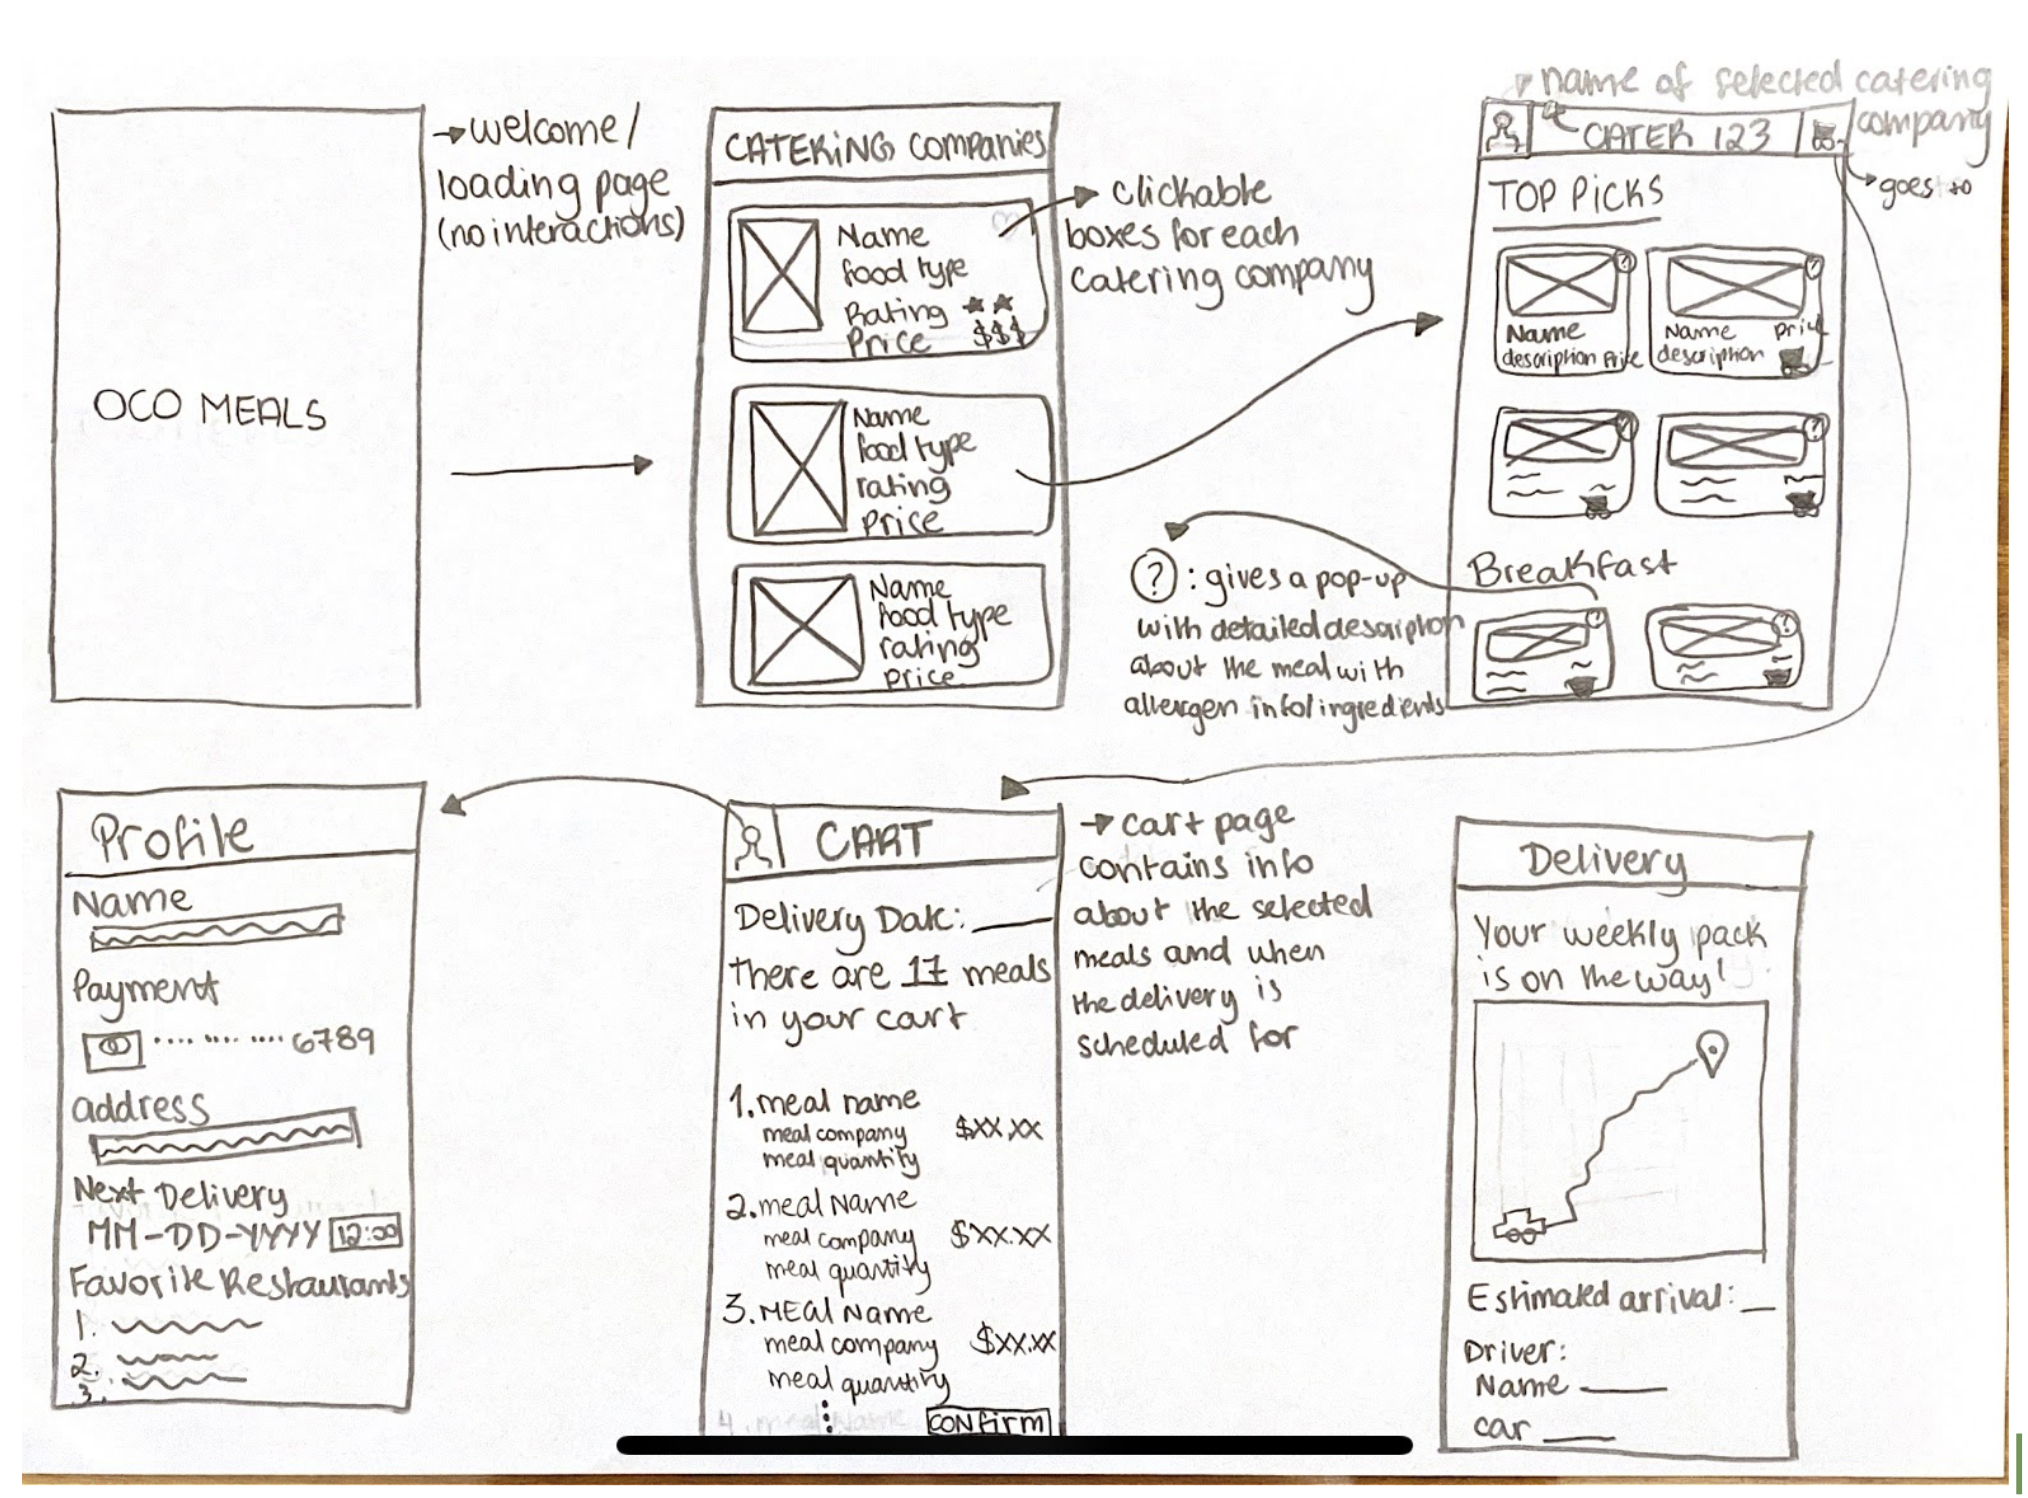 OCO MEALS
→ welcome/
loading page
(no interactions)
CATERING companies
Name
food type
Rating ★★
Price $$$
Name
food type
rating
price
Name
food type
rating
price
→ clickable
boxes for each
catering company
name of selected catering
company
CATER 123
→ goes to
TOP PICKS
?
Name
description Price
?
Name price
description
?
?
Breakfast
?
?
? : gives a pop-up
with detailed description
about the meal with
allergen info/ingredients
Profile
Name
Payment
.... .... .... 6789
address
Next Delivery
MM-DD-YYYY 12:00
Favorite Restaurants
1.
2.
3.
CART
Delivery Date: ___
there are 17 meals
in your cart
1. meal name
meal company $XX.XX
meal quantity
2. meal Name
meal company $XX.XX
meal quantity
3. MEal Name
meal company $XX.XX
meal quantity
4. meal Name
CONFirm
→ cart page
contains info
about the selected
meals and when
the delivery is
scheduled for
Delivery
Your weekly pack
is on the way!
Estimated arrival: __
Driver:
Name ____
car ____